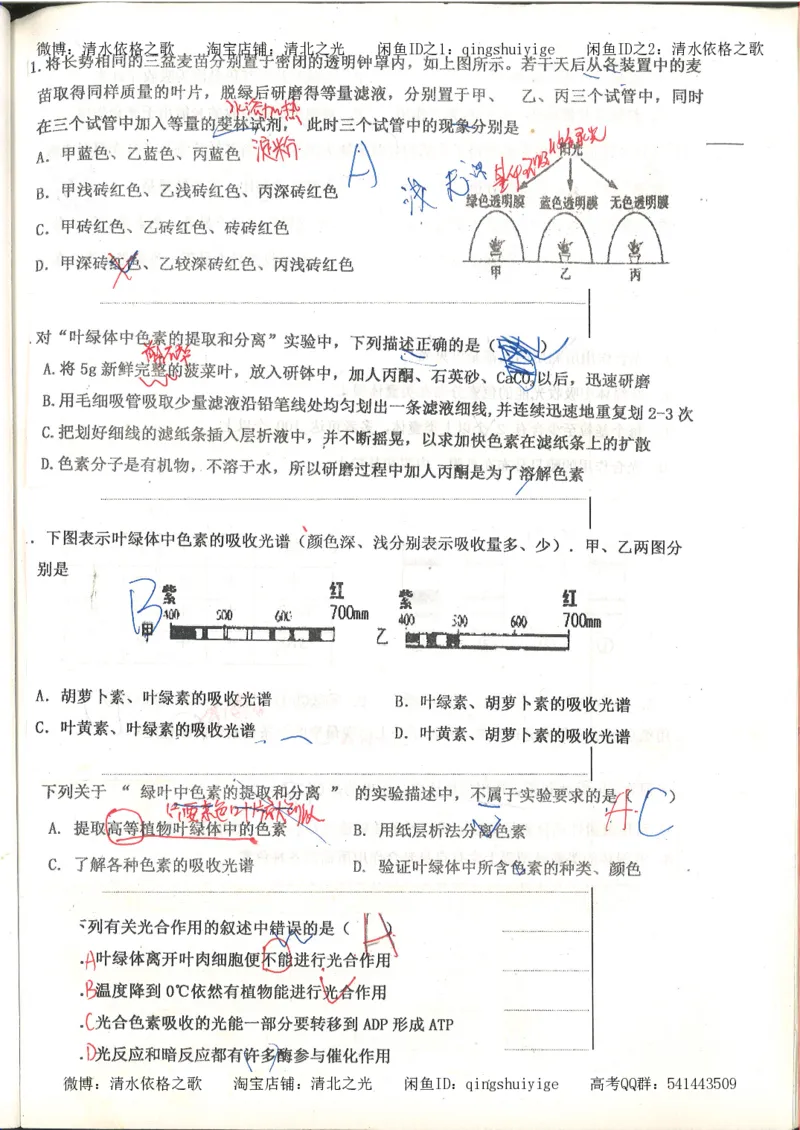 微博：清水依格之歌 淘宝店铺：清北之光 闲鱼ID之1：qingshuiyige 闲鱼ID之2：清水依格之歌
1.将长势相同的三盆麦苗分别置于密闭的透明钟罩内，如上图所示。若干天后从各装置中的麦
苗取得同样质量的叶片，脱绿后研磨得等量滤液，分别置于甲、 乙、丙三个试管中，同时
水浴加热
在三个试管中加入等量的斐林试剂， 此时三个试管中的现象分别是
A. 甲蓝色、乙蓝色、丙蓝色
淀粉
A
阳光
B. 甲浅砖红色、乙浅砖红色、丙深砖红色
绿色透明膜 蓝色透明膜 无色透明膜
C. 甲砖红色、乙砖红色、砖砖红色
D. 甲深砖红色、乙较深砖红色、丙浅砖红色
甲 乙 丙
对“叶绿体中色素的提取和分离”实验中，下列描述正确的是（ ）
A.将 5g 新鲜完整的菠菜叶，放入研钵中，加人丙酮、石英砂、CaCO₃以后，迅速研磨
B.用毛细吸管吸取少量滤液沿铅笔线处均匀划出一条滤液细线,并连续迅速地重复划 2-3 次
C.把划好细线的滤纸条插入层析液中，并不断摇晃，以求加快色素在滤纸条上的扩散
D.色素分子是有机物，不溶于水，所以研磨过程中加人丙酮是为了溶解色素
. 下图表示叶绿体中色素的吸收光谱（颜色深、浅分别表示吸收量多、少）. 甲、乙两图分
别是
B
紫 红 紫 红
400 500 600 700mm 400 500 600 700mm
甲 乙
A. 胡萝卜素、叶绿素的吸收光谱 B. 叶绿素、胡萝卜素的吸收光谱
C. 叶黄素、叶绿素的吸收光谱 D. 叶黄素、胡萝卜素的吸收光谱
下列关于 “ 绿叶中色素的提取和分离 ” 的实验描述中，不属于实验要求的是（ ）
A C
A. 提取高等植物叶绿体中的色素 B. 用纸层析法分离色素
C. 了解各种色素的吸收光谱 D. 验证叶绿体中所含色素的种类、颜色
下列有关光合作用的叙述中错误的是（ A ）
.A叶绿体离开叶肉细胞便不能进行光合作用
.B温度降到 0℃依然有植物能进行光合作用
.C光合色素吸收的光能一部分要转移到 ADP 形成 ATP
.D光反应和暗反应都有许多酶参与催化作用
微博：清水依格之歌 淘宝店铺：清北之光 闲鱼ID：qingshuiyige 高考QQ群：541443509